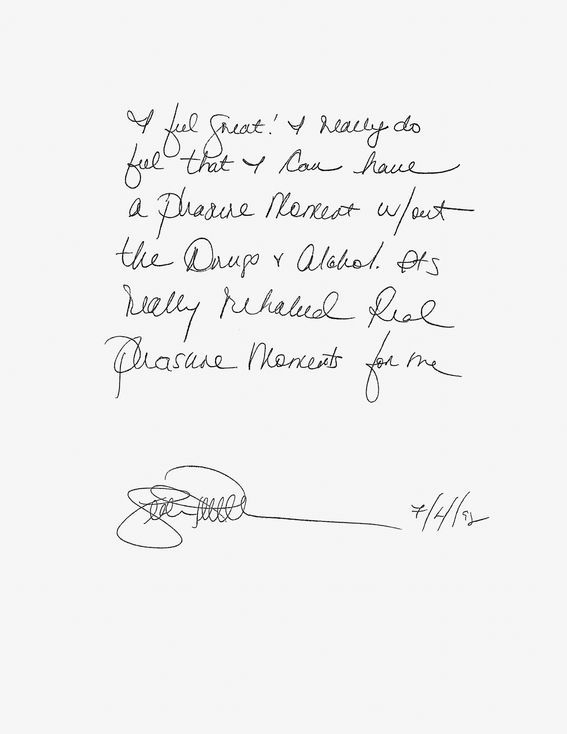 I feel great! I really do
feel that I can have
a pleasure Moment w/out
the Drugs & Alcohol. Its
really rehabed Real
pleasure Moments for me
7/4/92